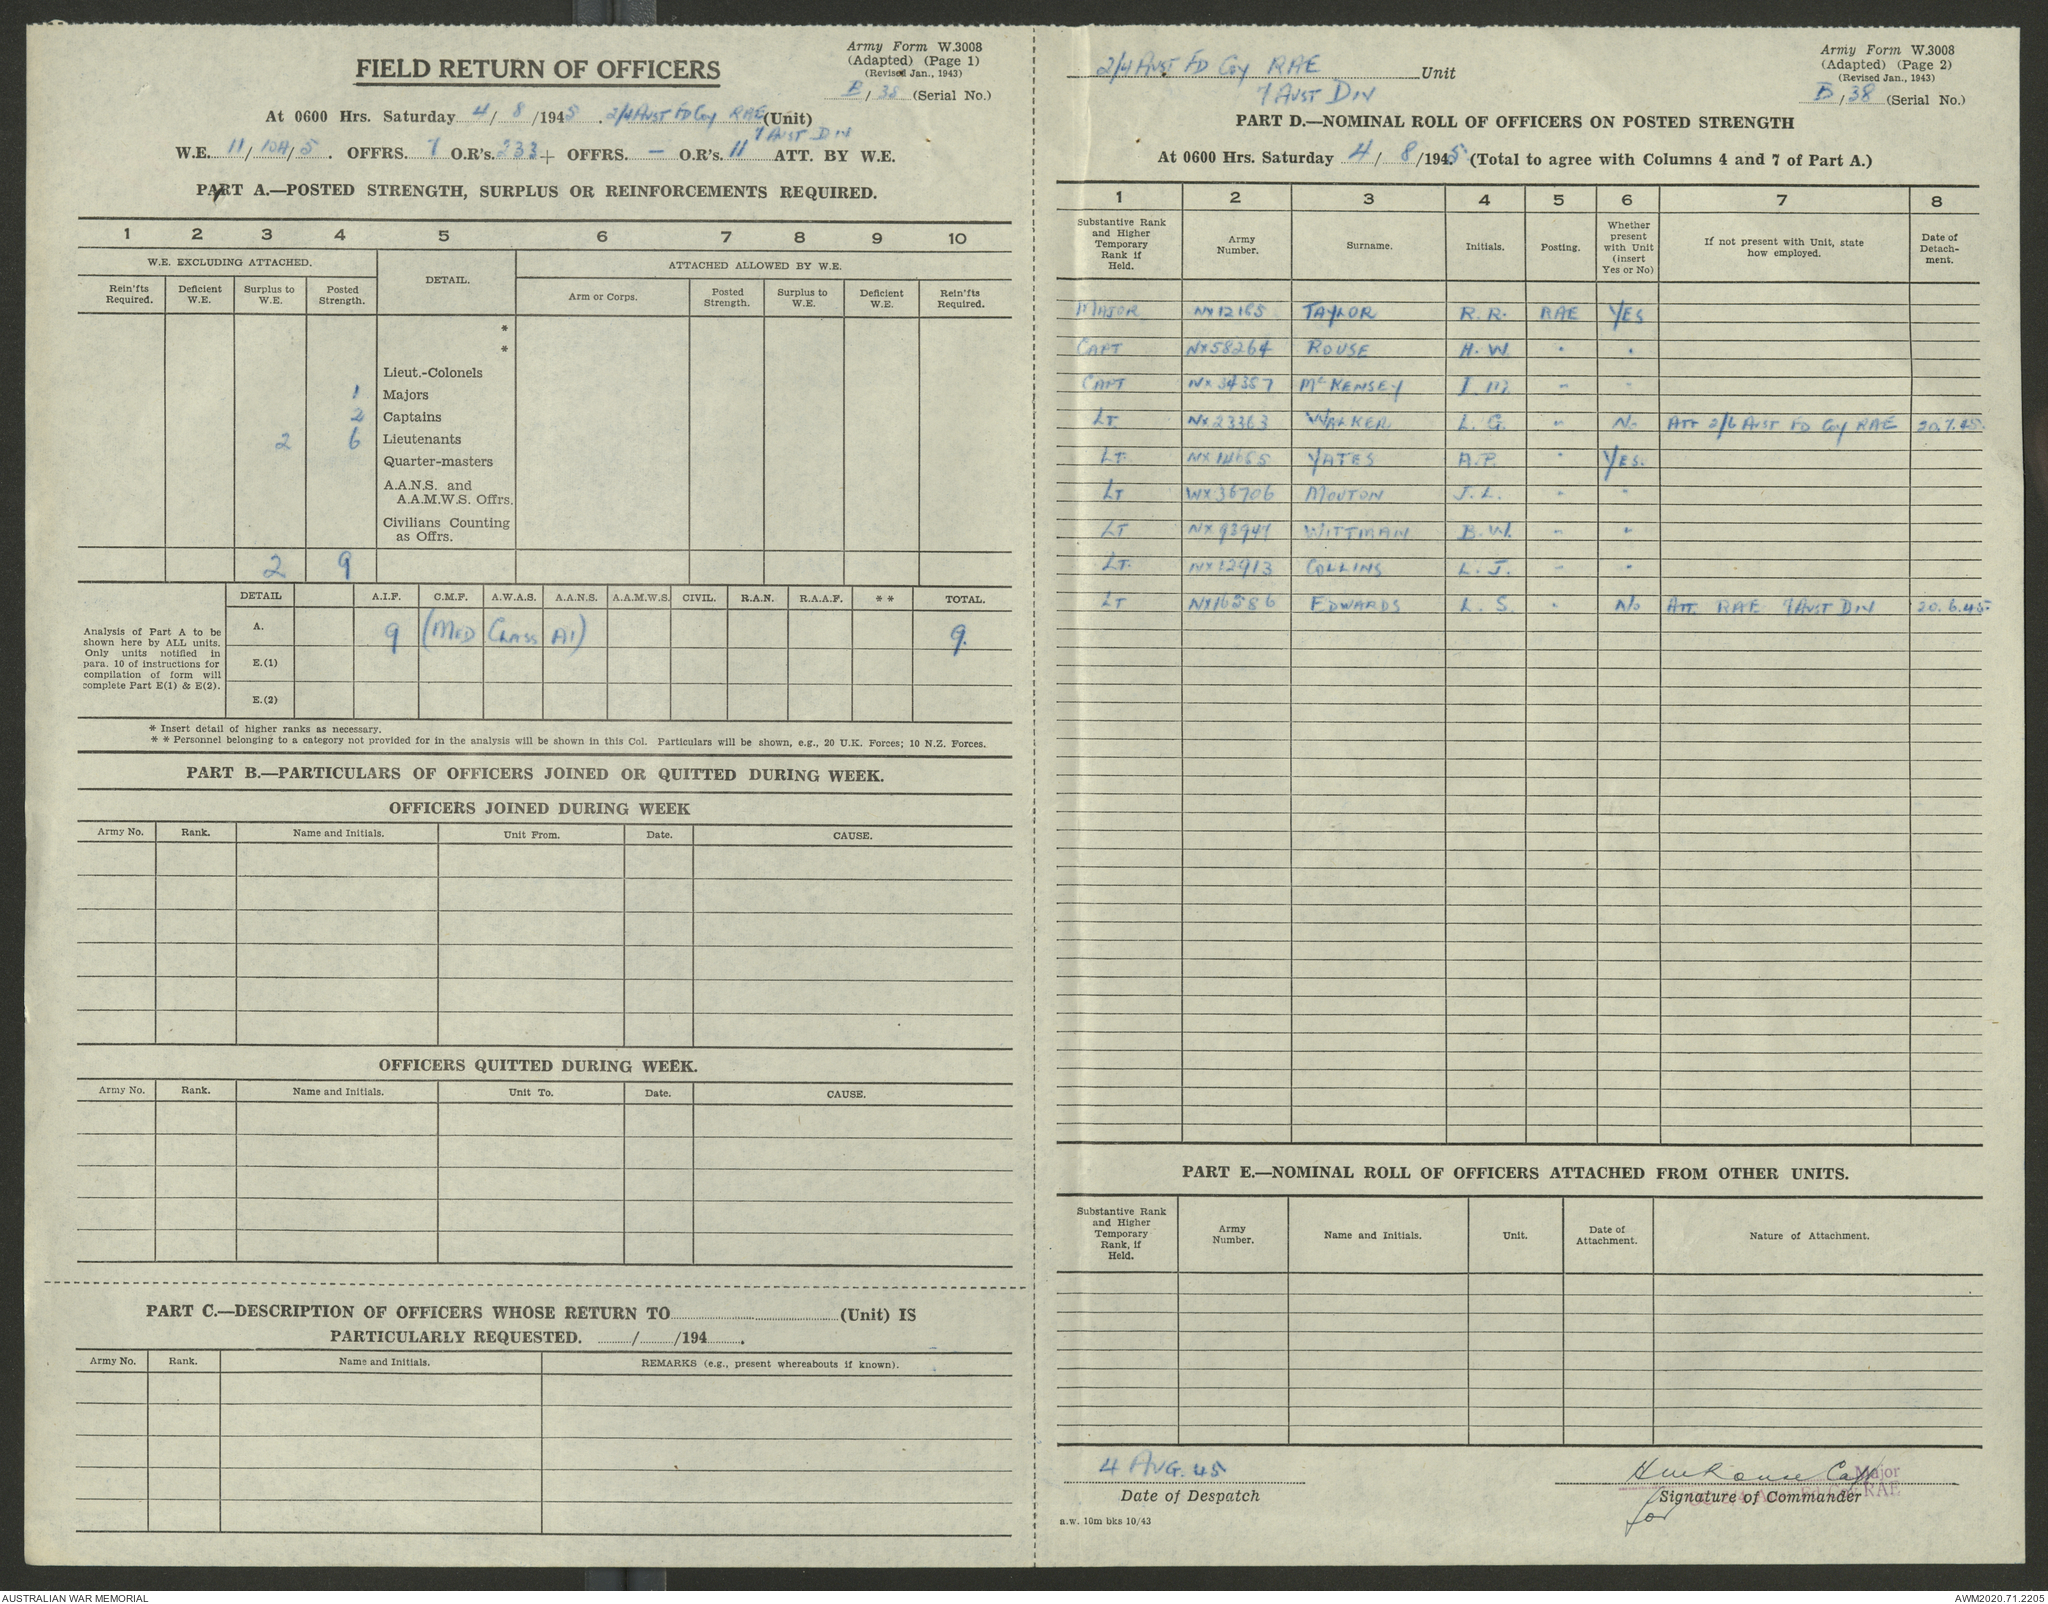 Army Form W.3008
(Adapted) (Page 1)
(Revised Jan., 1943)
B / 38 (Serial No.)
FIELD RETURN OF OFFICERS
At 0600 Hrs. Saturday 4 / 8 /1945 . 2/4 AUST FD COY RAE (Unit)
7 AUST DIV
W.E. 11 / 10A / 5 . OFFRS. 7 O.R's. 233 + OFFRS. — O.R's. 11 ATT. BY W.E.
PART A.—POSTED STRENGTH, SURPLUS OR REINFORCEMENTS REQUIRED.
1 2 3 4 5 6 7 8 9 10
W.E. EXCLUDING ATTACHED. DETAIL. ATTACHED ALLOWED BY W.E.
Rein'fts Required. Deficient W.E. Surplus to W.E. Posted Strength. Arm or Corps. Posted Strength. Surplus to W.E. Deficient W.E. Rein'fts Required.
*
*
Lieut.-Colonels
1 Majors
2 Captains
2 6 Lieutenants
Quarter-masters
A.A.N.S. and
A.A.M.W.S. Offrs.
Civilians Counting
as Offrs.
2 9
DETAIL A.I.F. C.M.F. A.W.A.S. A.A.N.S. A.A.M.W.S. CIVIL. R.A.N. R.A.A.F. * * TOTAL.
Analysis of Part A to be
shown here by ALL units.
Only units notified in
para. 10 of instructions for
compilation of form will
complete Part E(1) & E(2).
A. 9 (MED CLASS A1) 9.
E.(1)
E.(2)
* Insert detail of higher ranks as necessary.
* * Personnel belonging to a category not provided for in the analysis will be shown in this Col. Particulars will be shown, e.g., 20 U.K. Forces; 10 N.Z. Forces.
PART B.—PARTICULARS OF OFFICERS JOINED OR QUITTED DURING WEEK.
OFFICERS JOINED DURING WEEK
Army No. Rank. Name and Initials. Unit From. Date. CAUSE.
OFFICERS QUITTED DURING WEEK.
Army No. Rank. Name and Initials. Unit To. Date. CAUSE.
PART C.—DESCRIPTION OF OFFICERS WHOSE RETURN TO (Unit) IS
PARTICULARLY REQUESTED. / /194 .
Army No. Rank. Name and Initials. REMARKS (e.g., present whereabouts if known).
Army Form W.3008
(Adapted) (Page 2)
(Revised Jan., 1943)
B / 38 (Serial No.)
2/4 AUST FD COY RAE Unit
7 AUST DIV
PART D.—NOMINAL ROLL OF OFFICERS ON POSTED STRENGTH
At 0600 Hrs. Saturday 4 / 8 /1945 (Total to agree with Columns 4 and 7 of Part A.)
1 2 3 4 5 6 7 8
Substantive Rank and Higher Temporary Rank if Held. Army Number. Surname. Initials. Posting. Whether present with Unit (insert Yes or No) If not present with Unit, state how employed. Date of Detach-ment.
MAJOR NX12165 TAYLOR R.R. RAE YES
CAPT NX58264 ROUSE H.W. " "
CAPT NX34357 McKENSEY I.M. " "
LT NX23363 WALKER L.G. " No ATT 2/6 AUST FD COY RAE 20.7.45.
LT. NX14655 YATES A.P. " YES.
LT WX36706 MOUTON J.L. " "
LT NX93947 WITTMAN B.W. " "
LT. NX12913 COLLINS L.J. " "
LT NX16586 EDWARDS L.S. " No ATT RAE 7 AUST DIV 20.6.45.
PART E.—NOMINAL ROLL OF OFFICERS ATTACHED FROM OTHER UNITS.
Substantive Rank and Higher Temporary Rank, if Held. Army Number. Name and Initials. Unit. Date of Attachment. Nature of Attachment.
4 AUG. 45
Date of Despatch
HWRouse Capt Major
Signature of Commander RAE
for
a.w. 10m bks 10/43
AUSTRALIAN WAR MEMORIAL
AWM2020.71.2205